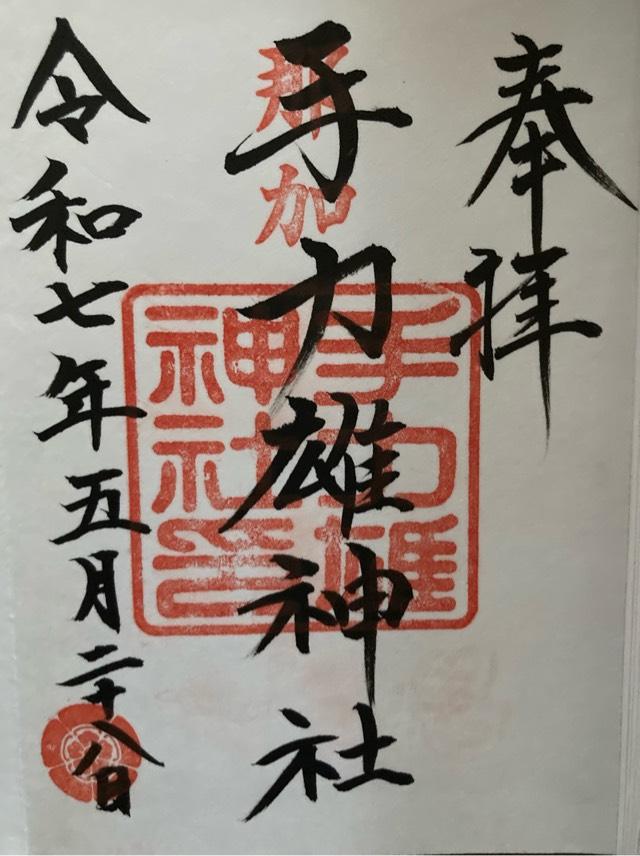 奉拝
那加
手力雄神社
手力雄
神社印
令和七年五月二十八日